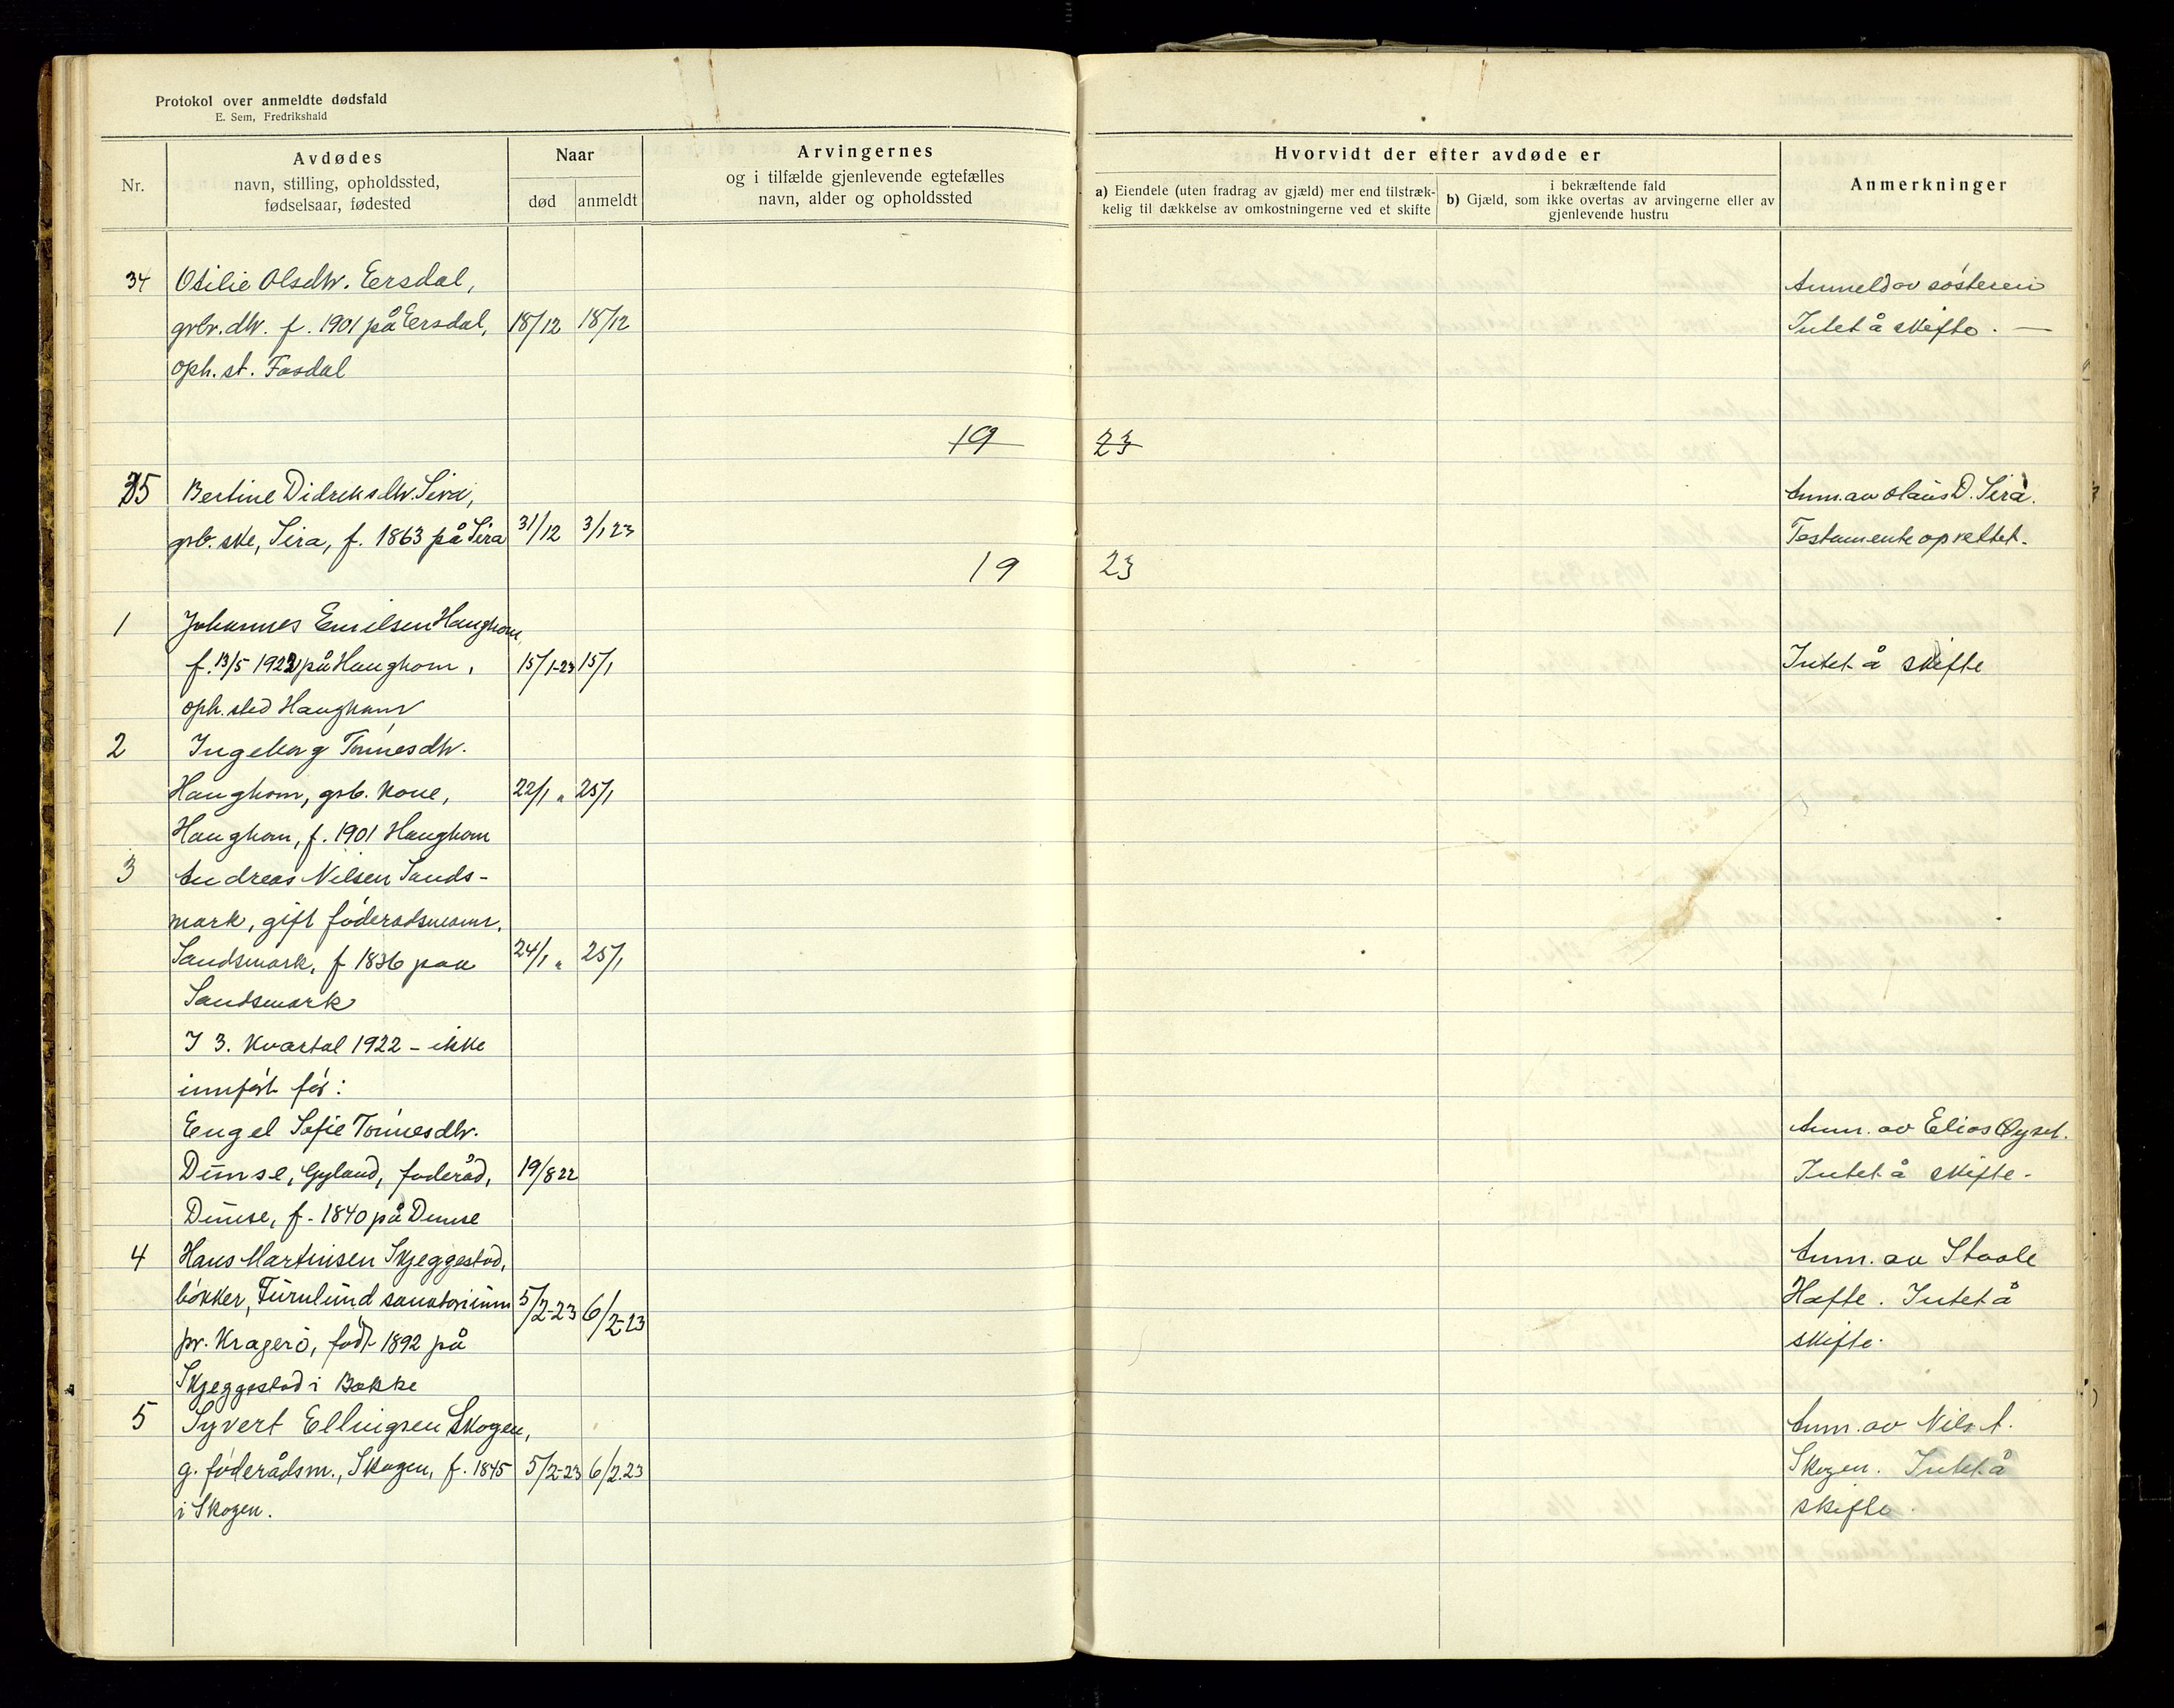 Protokol over anmeldte dødsfald
E. Sem, Fredrikshald
Nr.
Avdødes
navn, stilling, opholdssted,
fødselsaar, fødested
Naar
død
anmeldt
Arvingernes
og i tilfælde gjenlevende egtefælles
navn, alder og opholdssted
Hvorvidt der efter avdøde er
a) Eiendele (uten fradrag av gjæld) mer end tilstræk-
kelig til dækkelse av omkostningerne ved et skifte
i bekræftende fald
b) Gjæld, som ikke overtas av arvingerne eller av
gjenlevende hustru
Anmerkninger
34 Otilie Olsdtr. Eersdal, Anmeld av søsteren
grbr.dtr. f. 1901 på Eersdal, 18/12 18/12 Intet å skifte. —
oph.st. Fosdal
19 23
35 Bertine Didriksdtr. Sira, Anm. av Olaus D. Sira.
grb. ske, Sira, f. 1863 på Sira 31/12 3/1 23 Testamente oprettet.
19 23
1 Johannes Emilsen Haughom
f. 13/5 1922 på Haughom, 15/1-23 15/1 Intet å skifte
oph. sted Haughom
2 Ingeborg Tønnesdtr.
Haughom, grb. kone, 22/1 " 25/1
Haughom, f. 1901 Haughom
3 Andreas Nilsen Sands-
mark, gift føderadsmann,
Sandsmark, f 1836 paa 24/1 " 25/1
Sandsmark
I 3. kvartal 1922 – ikke
innført før:
Engel Sofie Tønnesdtr. Anm. av Elias Øyset.
Dunse, Gyland, foderåd, 19/8 22 Intet å skifte.
Dunse, f. 1840 på Dunse
4 Hans Martinsen Skjeggestad, Anm. av Staale
bøkker, Furulund sanatorium 5/2-23 6/2-23 Hafte. Intet å
pr. Kragerø, født 1892 på skifte.
Skjeggestad i Bakke
5 Syvert Ellingsen Skogen, Anm. av Nils A.
g. føderådsm., Skogen, f. 1845 5/2-23 6/2.23 Skogen. Intet å
i Skogen. skifte.